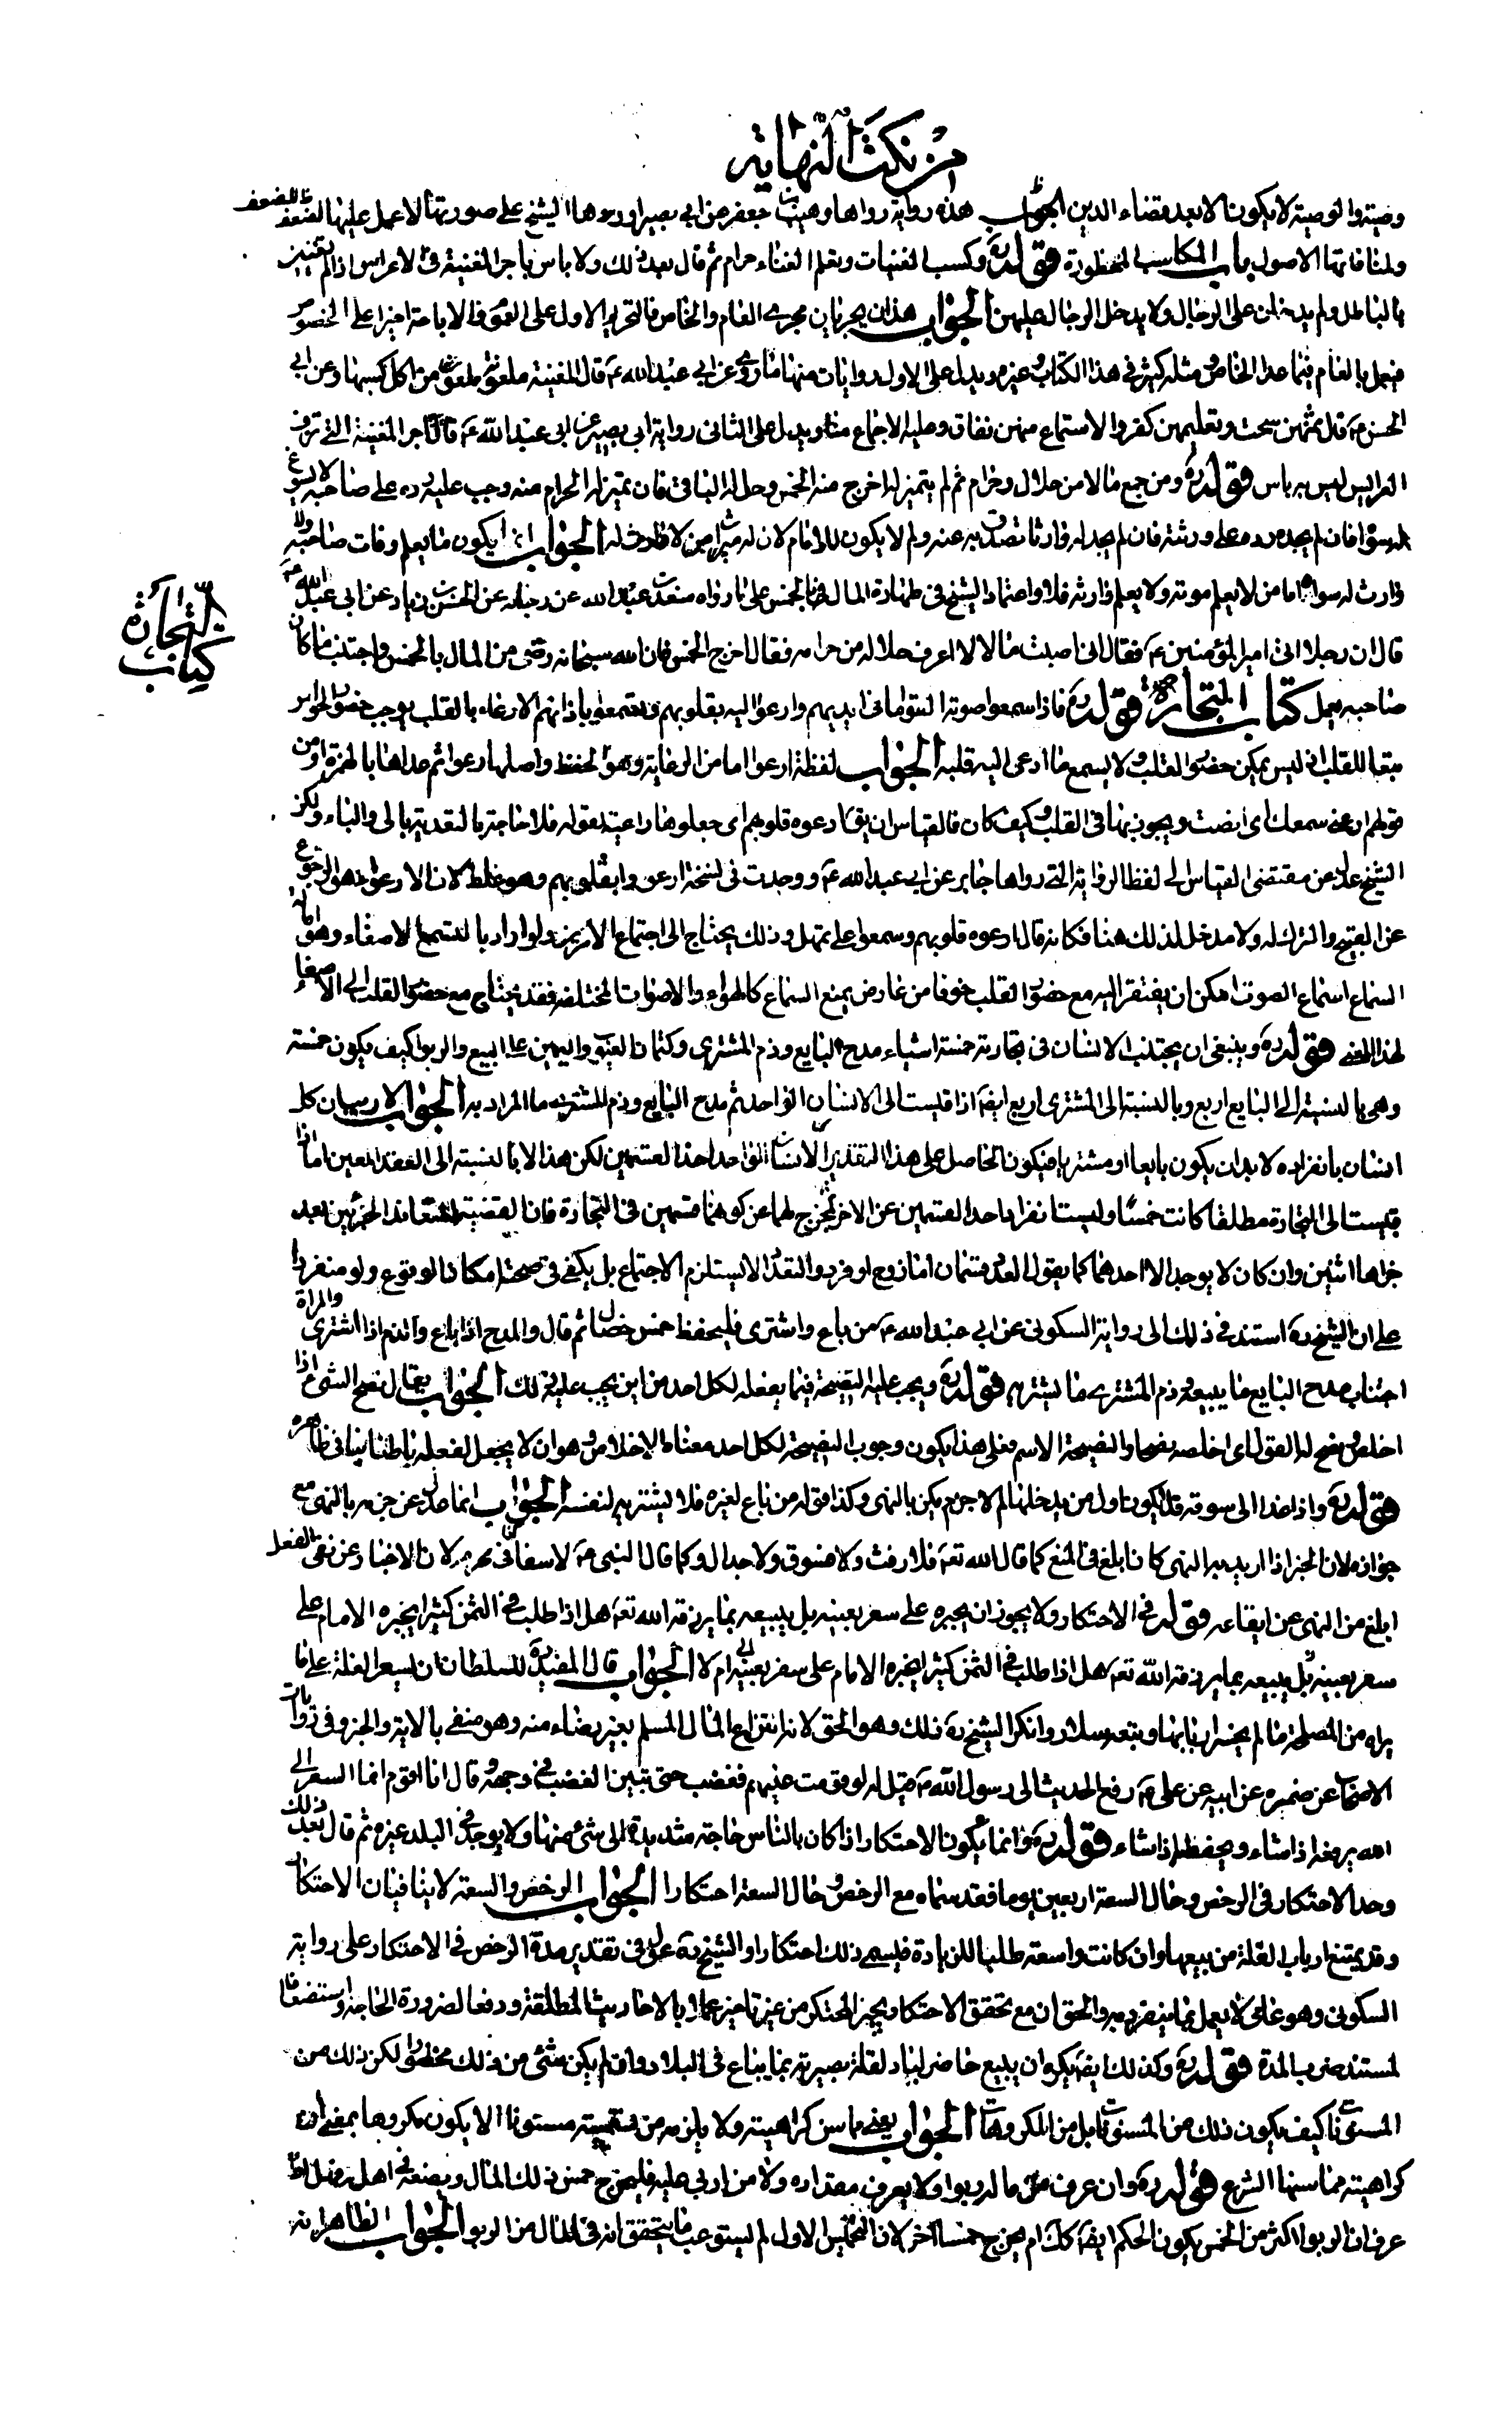 من نكت النهاية
وصيته والوصية لا يكون الا بعد قضاء الدين الجواب هذه رواية رواها وهيب بن جعفر عن ابي بصير اوردها الشيخ على صورتها لا عمل عليها لضعفها
ولمنافاتها الاصول باب المكاسب المحظورة قوله ره وكسب المغنيات وتعلم الغناء حرام ثم قال بعد ذلك ولا باس باجر المغنية في الاعراس اذا لم يغنين
بالباطل ولم يدخلن على الرجال ولا يدخل الرجال عليهن الجواب هذان يجريان مجرى العام والخاص فالتحريم الاول على العموم والاباحة اخيرا على الخصوص
فيعمل بالعام فيما عدا الخاص ومثله كثير في هذا الكتاب وغيره ويدل على الاول روايات منها ما روي عن ابي عبد الله ع قال المغنية ملعونة ملعون من اكل كسبها وعن ابي
الحسن ع قال ثمنهن سحت وتعليمهن كفر والاستماع منهن نفاق وعليه الاجماع منا ويدل على الثاني رواية ابي بصير عن ابي عبد الله ع قال اجر المغنية التي تزف
العرايس ليس به باس قوله ره ومن جمع مالا من حلال وحرام ثم لم يتميز له اخرج منه الخمس وحل له الباقي فان تميز له الحرام منه وجب عليه رده على صاحبه لا يسوغ
له سواه فان لم يجده رده على ورثته فان لم يجد له وارثا تصدق به عنه ولم لا يكون للامام لان له ميراث من لا وارث له الجواب انما يكون ما يعلم وفات صاحبه ولا
وارث له سواه اما من لا يعلم موته ولا يعلم وارثه فلا واعتماد الشيخ في طهارة المال بالخمس على ما رواه سعد بن عبد الله عن رجاله عن الحسن بن زياد عن ابي عبد الله ع
قال ان رجلا اتى امير المؤمنين ع فقال اني اصبت مالا لا اعرف حلاله من حرامه فقال اخرج الخمس فان الله سبحانه رضى من المال بالخمس واجتنب ما كان
صاحبه يعمل كتاب المتجارة قوله ره فاذا سمعوا صوته القوا ما في ايديهم وارعوا اليه بقلوبهم وتسمعوا باذانهم الارعاء بالقلب يوجب حضور الجوارح
تبعا للقلب اذ ليس يمكن حضور القلب ولا يسمع ما ادعى اليه قلبه الجواب لفظة ارعوا اما من الرعاية وهو الحفظ واصلها رعوا ثم عداها بالهمزة او من
قولهم ارعني سمعك اي انصت ويجوز بها في القلب وكيف كان فالقياس ان يق ارعوه قلوبهم اي جعلوها راعية لقوله فلا حاجة بالتعدية بالى والباء ولكن
الشيخ عدل عن مقتضى القياس الى لفظ الرواية التي رواها جابر عن ابي عبد الله ع ووجدت في نسخة ارعووا بقلوبهم وهو غلط لان الارعواء هو الرجوع
عن القبيح والترك له ولا مدخل لذلك هنا فكانه قال ارعوه قلوبهم وسمعوا على تمهل وذلك يحتاج الى اجتماع الامرين ولو اراد بالتسمع الاصغاء وهو امالة
السماع استماع الصوت امكن ان يفتقر اليه مع حضور القلب خوفا من عارض يمنع السماع كالهواء والاصوات المختلفة فقد يحتاج مع حضور القلب الى الاصغاء
لهذا المعنى قوله ره وينبغي ان يجتنب الانسان في تجارته خمسة اشياء مدح البايع وذم المشتري وكتمان العيوب واليمين على البيع والربوا كيف يكون خمسة
وهي بالنسبة الى البايع اربع وبالنسبة الى المشتري اربع ايضا اذا قيست الى الانسان الواحد ثم مدح البايع وذم المشتري ما المراد به الجواب لا ريب ان كل
انسان بانفراده لا بد ان يكون بايعا او مشتريا فيكون الحاصل على هذا التقدير للانسان الواحد احد القسمين لكن هذا لا بالنسبة الى العقد المعين اما اذا
قيست الى التجارة مطلقا كانت خمسا وليست انفراد احد القسمين عن الاخر بمخرج لهما عن كونهما قسمين في التجارة فان القضية المتعاند الجزئين يعد
جزاها اثنين وان كان لا يوجد الا احدهما كما يقول العدد قسمان اما زوج او فرد والتعداد لا يستلزم الاجتماع بل يكفي في صحته امكان الوقوع ولو منفردا
على ان الشيخ ره استند في ذلك الى رواية السكوني عن ابي عبد الله ع من باع واشترى فليحفظ خمس خصال ثم قال والمدح اذا باع والذم اذا اشترى والمراة
اجتناب مدح البايع ما يبيعه وذم المشتري ما يشتريه قوله ره ويجب عليه النصيحة فيما يفعله لكل احد من اين يجب عليه ذلك الجواب يقال نصح الشيء اذا
اخلص ونصح له القول اي اخلصه نصحا والنصيحة الاسم فعلى هذا يكون وجوب النصيحة لكل احد معناه الاخلاص وهو ان لا يجعل لفعله باطنا ينافي ظاهره
قوله ره واذا غدا الى سوقه فلا يكون اول من يدخلها لم لا جزم يكن بالنهي وكذا قوله من باع لغيره فلا يشتريه لنفسه الجواب انما عدل عن جزمه بالنهي مع
جوازه لان الخبر اذا اريد به النهي كان ابلغ في المنع كما قال الله تعه فلا رفث ولا فسوق ولا جدال وكما قال النبي ص لا سفاح في محرم لان الاخبار عن نفي الفعل
ابلغ من النهي عن ايقاعه قوله في الاحتكار ولا يجوز ان يجبره على سعر بعينه بل يبيعه بما يرزقه الله تعه هل اذا طلب في الثمن كثيرا يجبره الامام على
سعر بعينه بل يبيعه بما يرزقه الله تعه هل اذا طلب في الثمن كثيرا يجبره الامام على سعر بعينه ام لا الجواب قال المفيد ره للسلطان ان يسعر الغلة على ما
يراه من المصلحة ما لم يخسر اربابها وتبعه سلار وانكر الشيخ ره ذلك وهو الحق لانه انتزاع المال المسلم بغير رضاء منه وهو منفي بالاية والخبر وفي روايات
الاصحاب عن ضميره عن ابيه عن علي ع رفع الحديث الى رسول الله ص قيل له لو قومت عليهم فغضب حتى تبين الغضب في وجهه وقال انا اقوم انما السعر الى
الله يرفعه اذا شاء ويخفضه اذا شاء قوله ره وانما يكون الاحتكار اذا كان بالناس حاجة شديدة الى شيء منها ولا يوجد في البلد غيره ثم قال بعد ذلك
وحد الاحتكار في الرخص وحال السعة اربعين يوما فقد سماه مع الرخص وحال السعة احتكارا الجواب الرخص والسعة لا ينافيان الاحتكار
وقد يمتنع ارباب الغلة من بيعها وان كانت واسعة طلبا للزيادة فيسمى ذلك احتكارا والشيخ ره عول في تقدير مدة الرخص في الاحتكار على رواية
السكوني وهو عامي لا يعمل بما ينفرد به والحق ان مع تحقق الاحتكار يجبر المحتكر من غير تاخير عملا بالاحاديث المطلقة ودفعا لضرورة الحاجة واستضعافا
لمستند ضرب المدة قوله ره وكذلك ايضا يكره ان يبيع حاضر لباد لقلة بصيرته بما يباع في البلاد وان لم يكن شيء من ذلك محظورا لكن ذلك من
المسنونات كيف يكون ذلك من المسنونات بل من المكروهات الجواب يعني ما سن كراهيته ولا يلزمه من تسميته مسنونا الا يكون مكروها بمعنى ان
كراهيته مما سنها الشرع قوله ره وان عرف ان ماله ربوا ولا يعرف مقداره ولا من اربى عليه فليخرج خمس ذلك المال ويضعه في اهله
عرف ان الربوا اكثر من الخمس يكون الحكم ايضا كك ام يخرج خمسا اخر لان التخميس الاول لم يستوعب ما يتحقق انه في المال من الربوا الجواب الظاهر انه
كتاب
التجارة